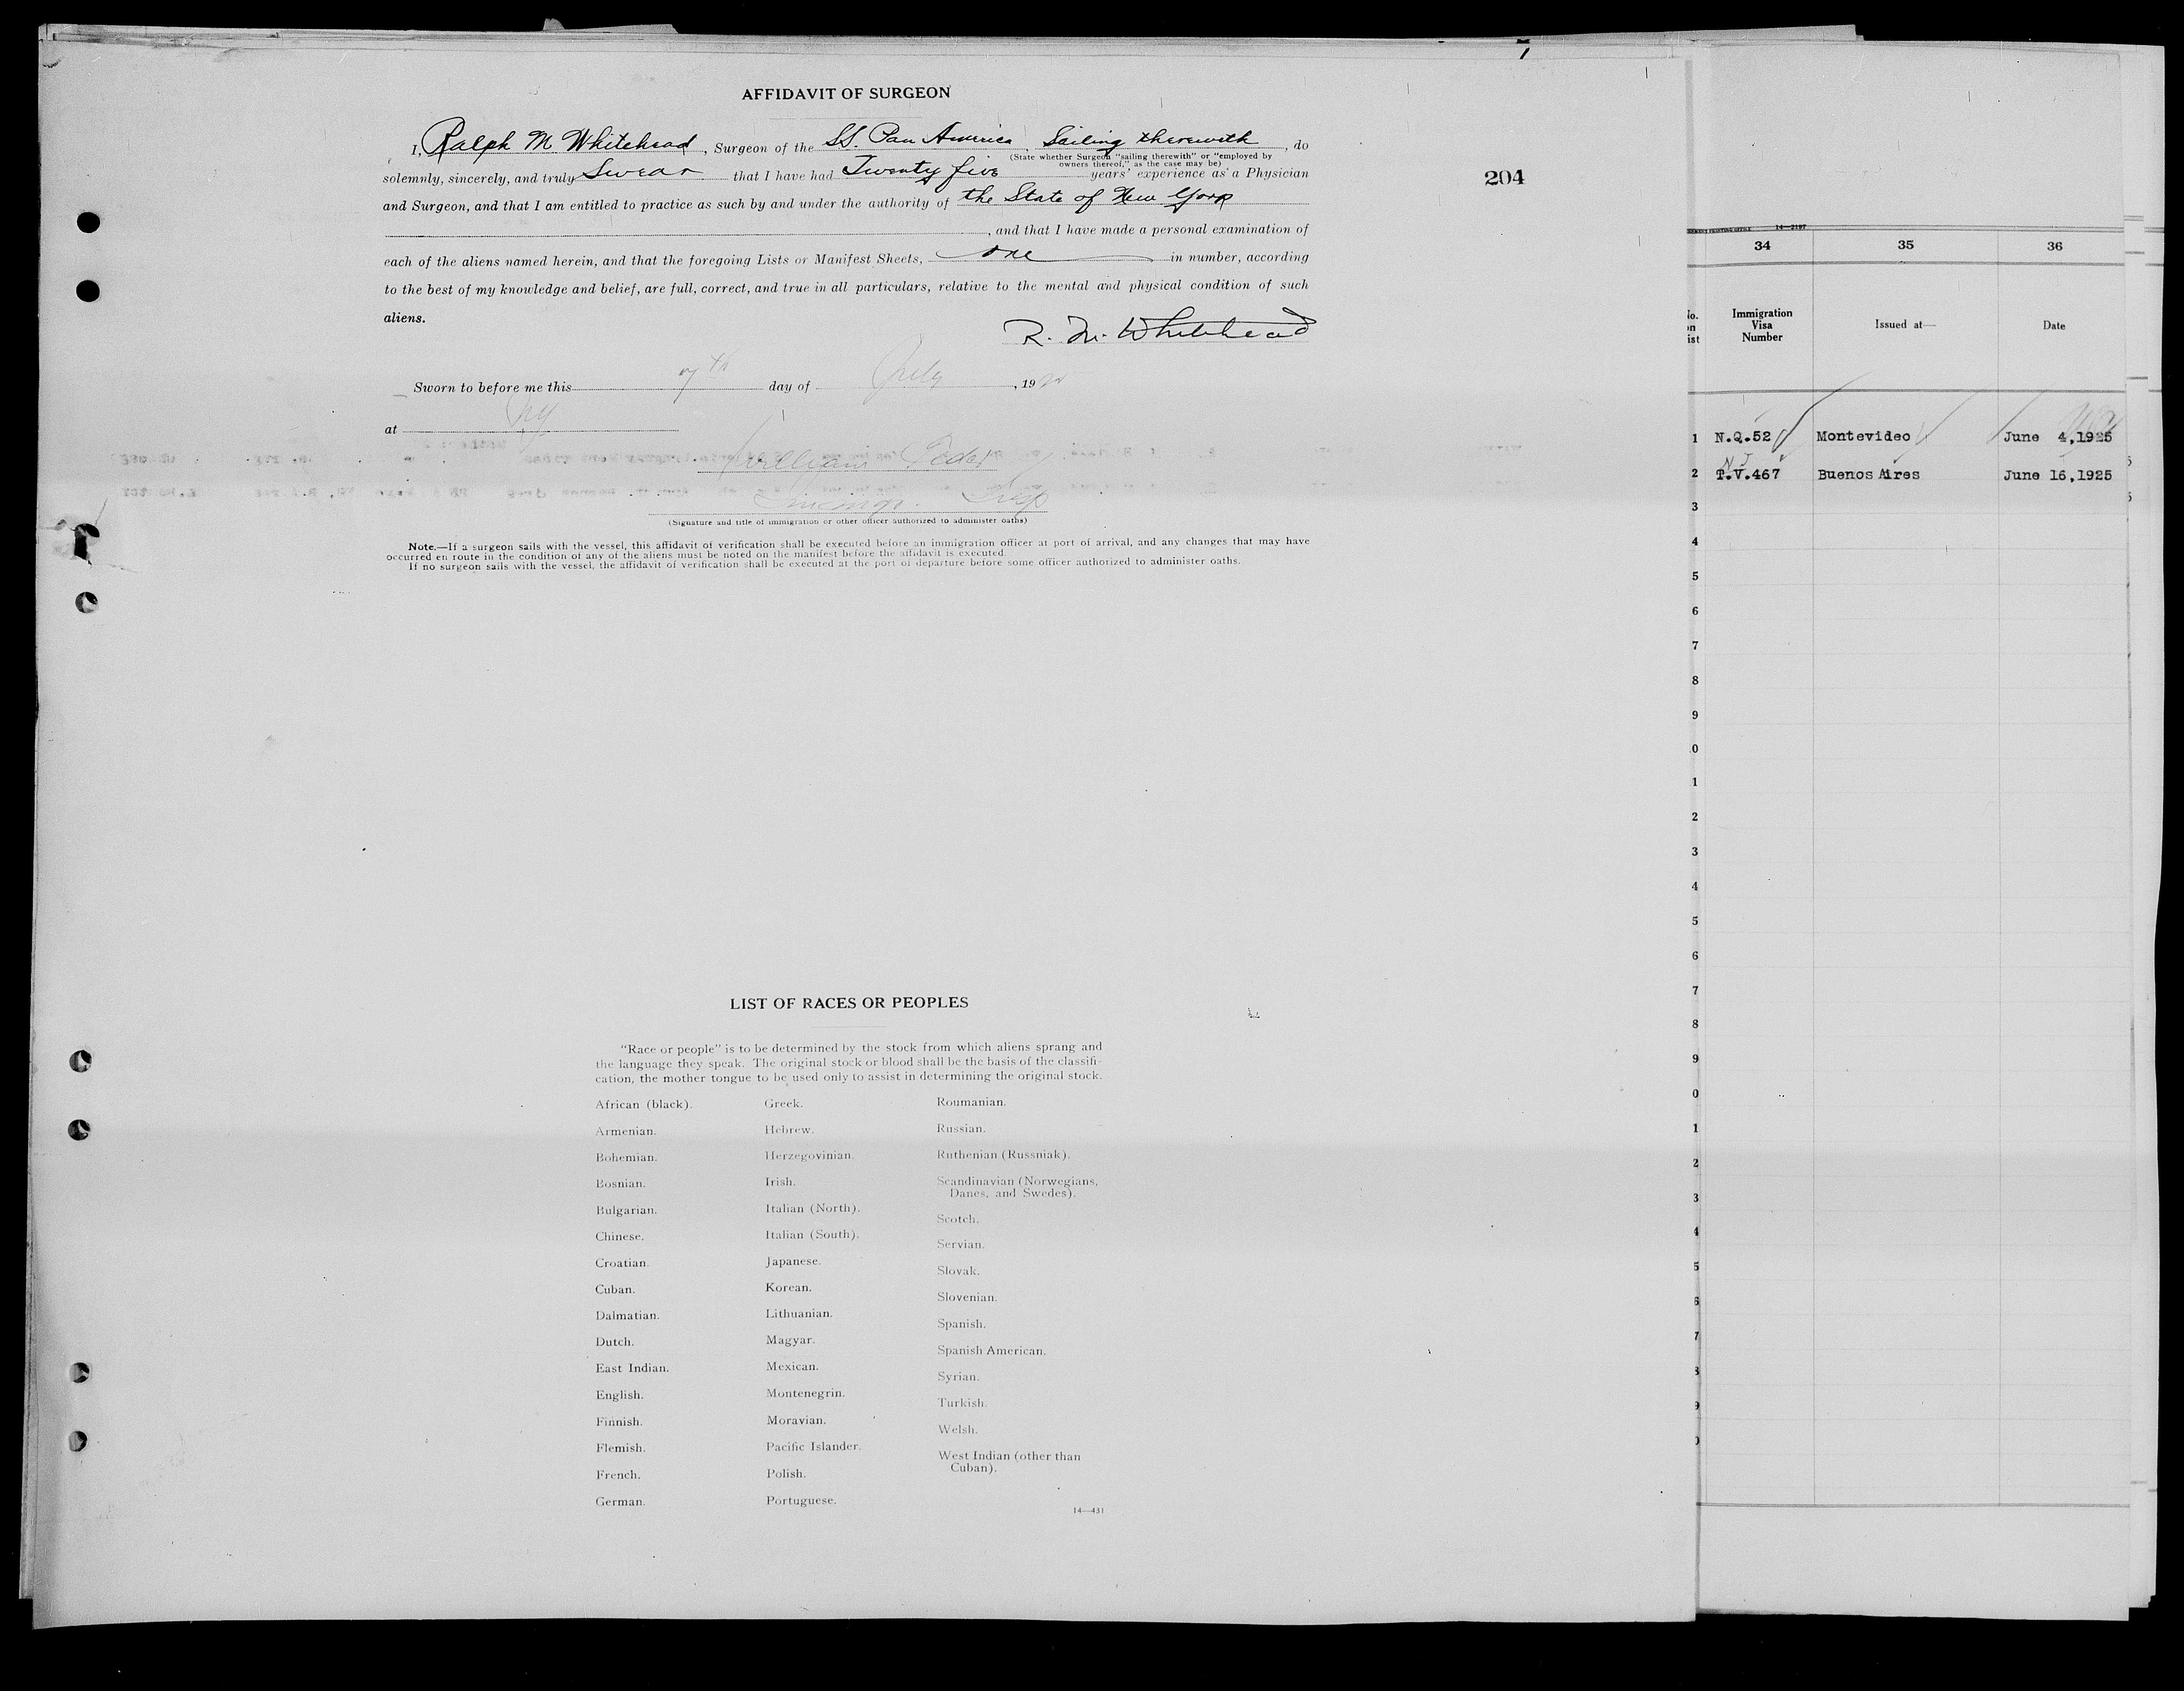 AFFIDAVIT OF SURGEON
I, Ralph M Whitehead, Surgeon of the SS. Pan America, Sailing therewith, do
(State whether Surgeon "sailing therewith" or "employed by
owners thereof," as the case may be)
solemnly, sincerely, and truly Swear that I have had Twenty five years' experience as a Physician
and Surgeon, and that I am entitled to practice as such by and under the authority of the State of New York
, and that I have made a personal examination of
each of the aliens named herein, and that the foregoing Lists or Manifest Sheets, one in number, according
to the best of my knowledge and belief, are full, correct, and true in all particulars, relative to the mental and physical condition of such
aliens.
R. M. Whitehead
Sworn to before me this 7th day of July, 19
at NY
William
Insp
(Signature and title of immigration or other officer authorized to administer oaths)
Note.—If a surgeon sails with the vessel, this affidavit of verification shall be executed before an immigration officer at port of arrival, and any changes that may have
occurred en route in the condition of any of the aliens must be noted on the manifest before the affidavit is executed.
If no surgeon sails with the vessel, the affidavit of verification shall be executed at the port of departure before some officer authorized to administer oaths.
204
LIST OF RACES OR PEOPLES
"Race or people" is to be determined by the stock from which aliens sprang and
the language they speak. The original stock or blood shall be the basis of the classifi-
cation, the mother tongue to be used only to assist in determining the original stock.
African (black).
Armenian.
Bohemian.
Bosnian.
Bulgarian.
Chinese.
Croatian.
Cuban.
Dalmatian.
Dutch.
East Indian.
English.
Finnish.
Flemish.
French.
German.
Greek.
Hebrew.
Herzegovinian.
Irish.
Italian (North).
Italian (South).
Japanese.
Korean.
Lithuanian.
Magyar.
Mexican.
Montenegrin.
Moravian.
Pacific Islander.
Polish.
Portuguese.
Roumanian.
Russian.
Ruthenian (Russniak).
Scandinavian (Norwegians,
Danes, and Swedes).
Scotch.
Servian.
Slovak.
Slovenian.
Spanish.
Spanish American.
Syrian.
Turkish.
Welsh.
West Indian (other than
Cuban).
14—431
14—2197
34 35 36
Immigration
Visa
Number
Issued at—
Date
1 N.Q.52 Montevideo June 4,1925
2 T.V.467 Buenos Aires June 16,1925
3
4
5
6
7
8
9
0
1
2
3
4
5
6
7
8
9
0
1
2
3
4
5
6
7